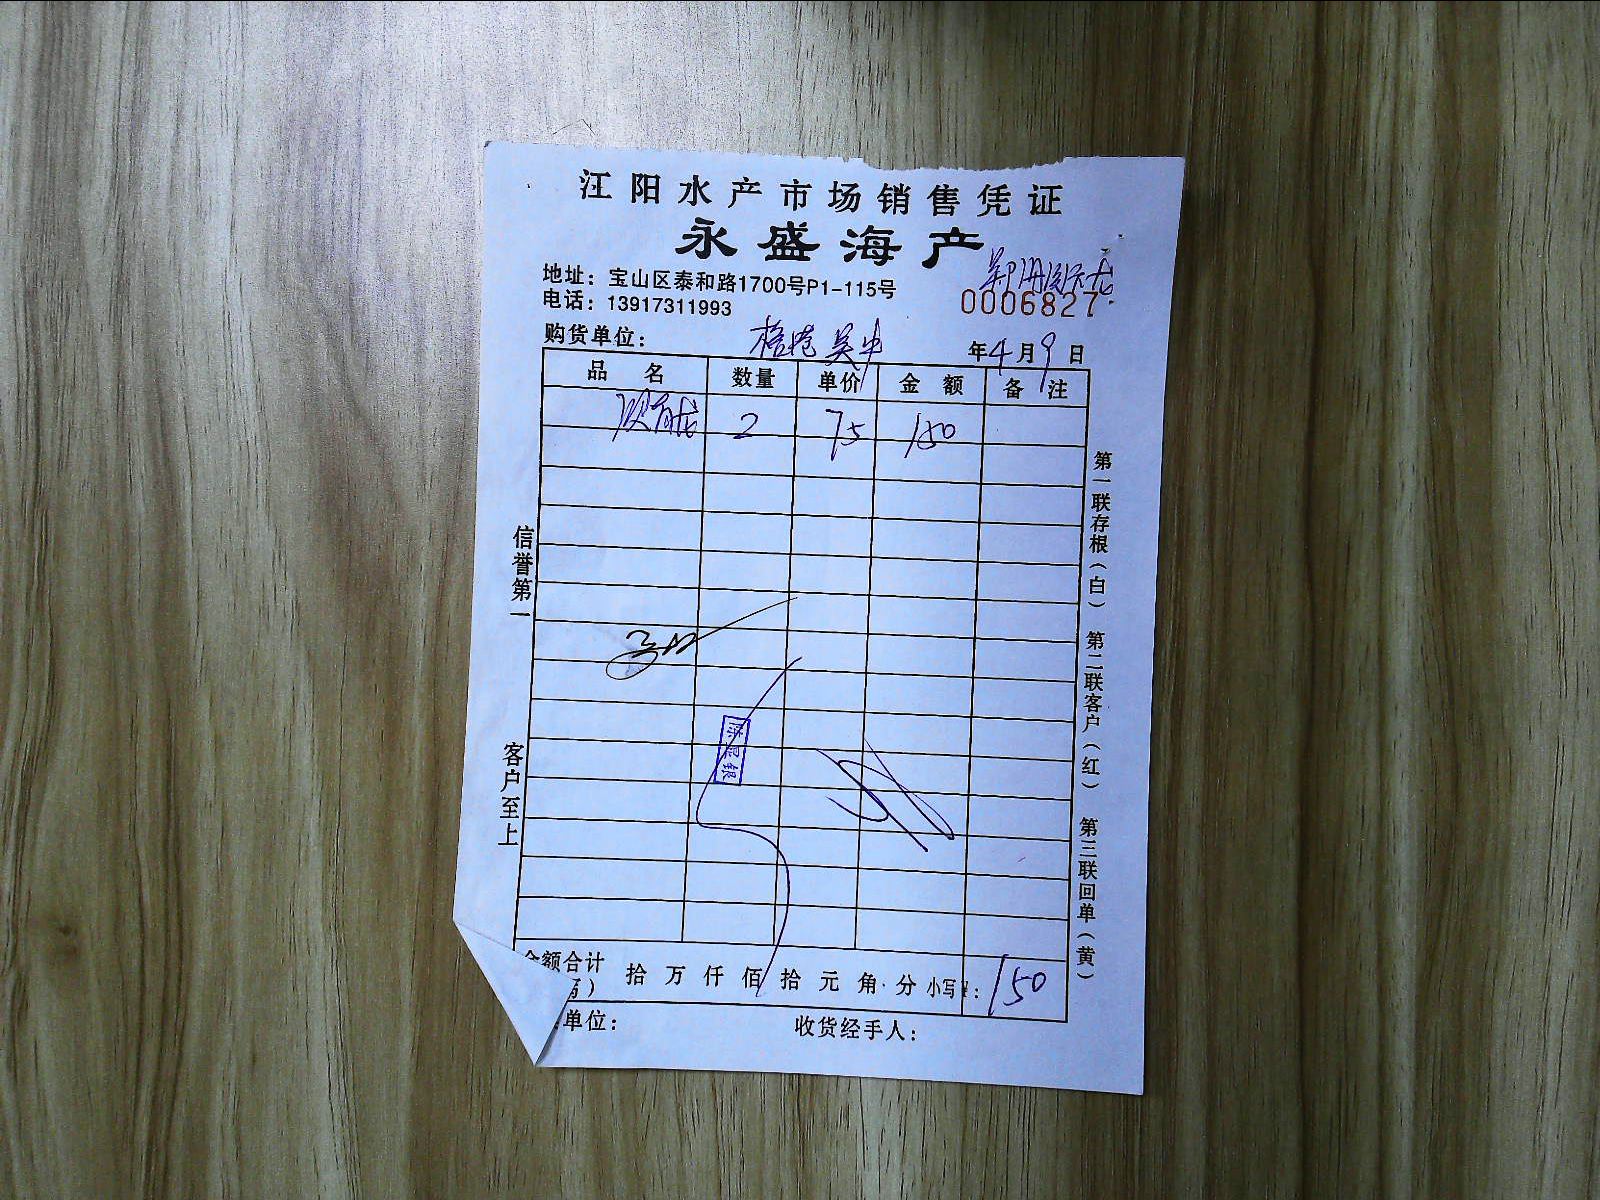 江阳水产市场销售凭证
永盛海产
地址：宝山区泰和路1700号P1-115号
电话：13917311993
0006827
购货单位： 吴中
年4月9日
品 名 数量 单价 金 额 备 注
2 75 150
信誉第一
客户至上
第一联存根（白） 第二联客户（红） 第三联回单（黄）
陈 银
额合计 拾 万 仟 佰 拾 元 角 分 小写 ： 150
单位： 收货经手人：